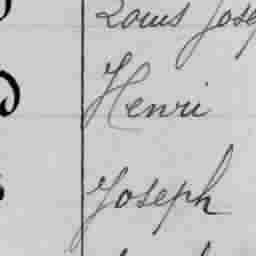 Louis Josep
Henri
Joseph